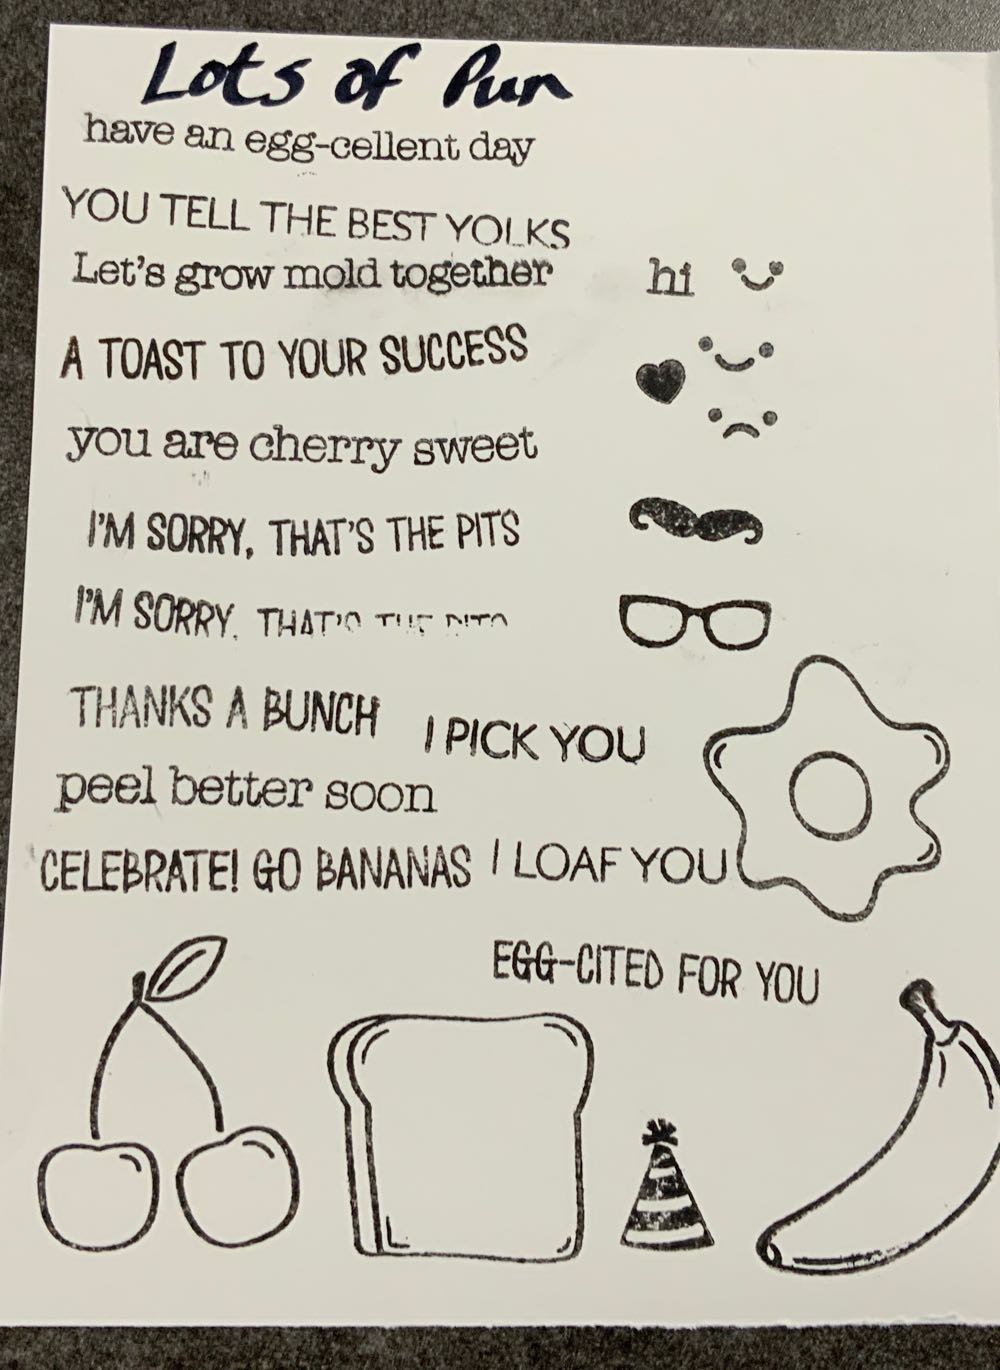 Lots of Pun
have an egg-cellent day
YOU TELL THE BEST YOLKS
Let's grow mold together
hi
A TOAST TO YOUR SUCCESS
you are cherry sweet
I'M SORRY, THAT'S THE PITS
I'M SORRY, THAT'S THE PITS
THANKS A BUNCH
I PICK YOU
peel better soon
CELEBRATE! GO BANANAS
I LOAF YOU
EGG-CITED FOR YOU